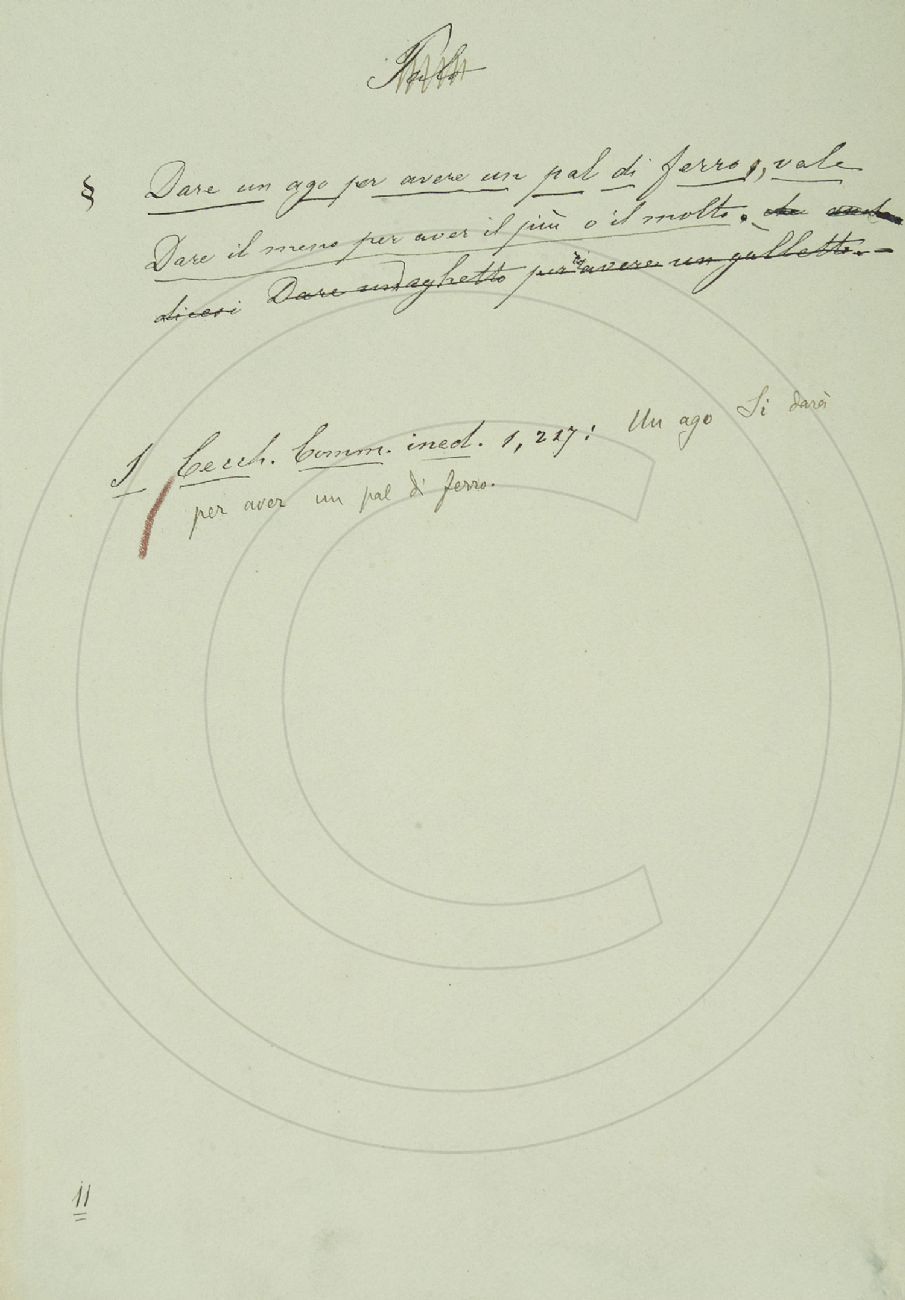 Palo
§ Dare un ago per avere un pal di ferro, vale
Dare il meno per aver il più o il molto.
dicesi Dare un aghetto per avere un galletto.
1 Cecch. Comm. ined. 1, 217: Un ago Si darà
per aver un pal di ferro.
11